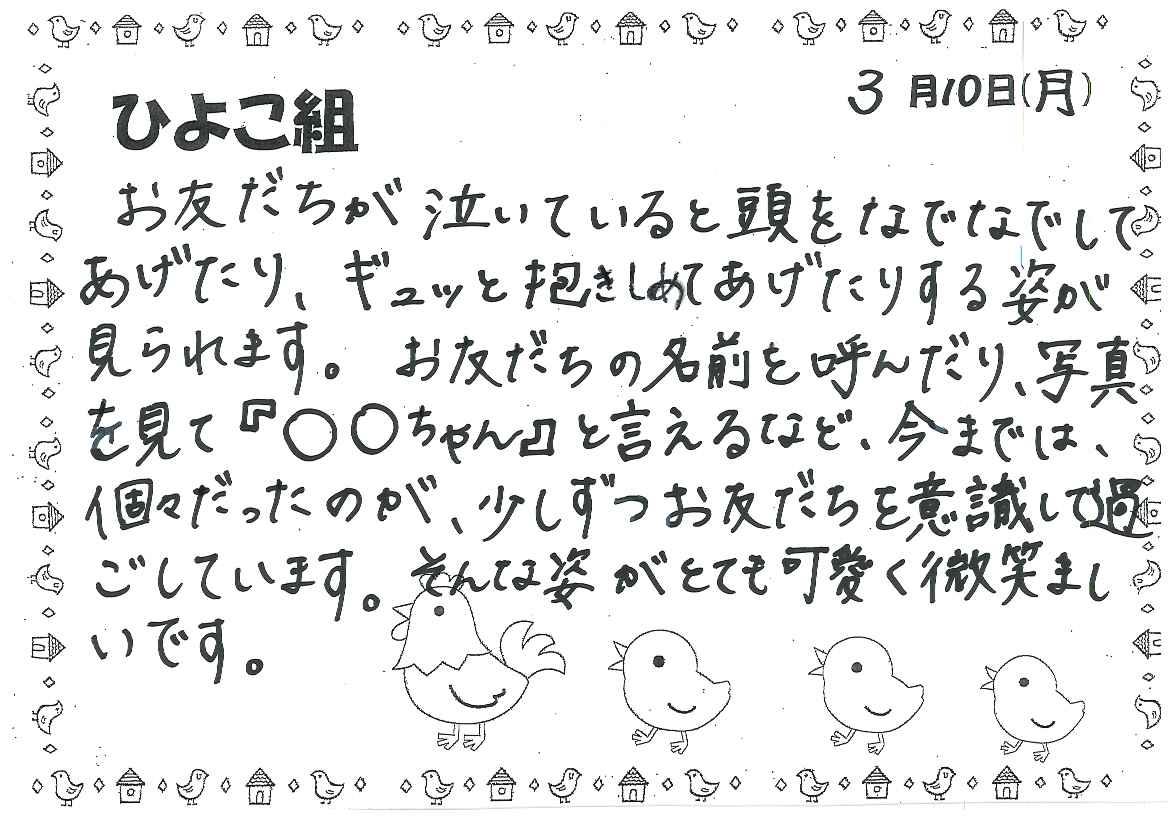 3月10日(月)
ひよこ組
お友だちが泣いていると頭をなでなでして
あげたり、ギュッと抱きしめてあげたりする姿が
見られます。お友だちの名前を呼んだり、写真
を見て『〇〇ちゃん』と言えるなど、今までは、
個々だったのが、少しずつお友だちを意識して過
ごしています。そんな姿がとても可愛く微笑まし
いです。